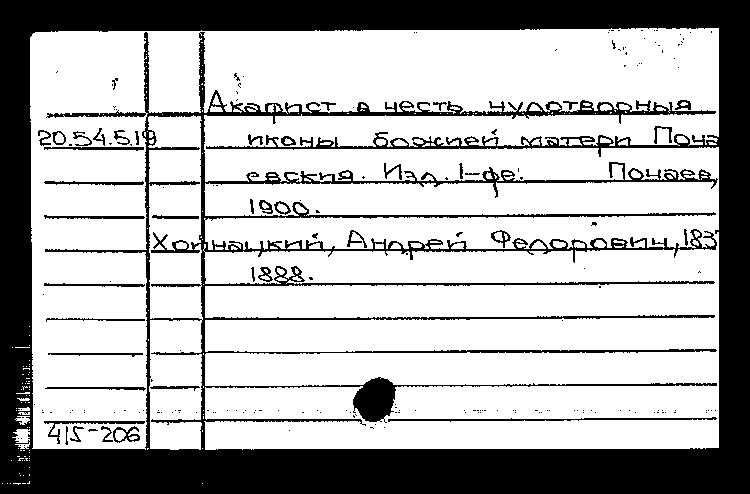 Акафист в честь чудотворныя
20.54.519 иконы божией матери Поча
евския. Изд. 1-фе. Почаев,
1900.
Хойнацкий, Андрей Федорович, 183
1888.
415-206